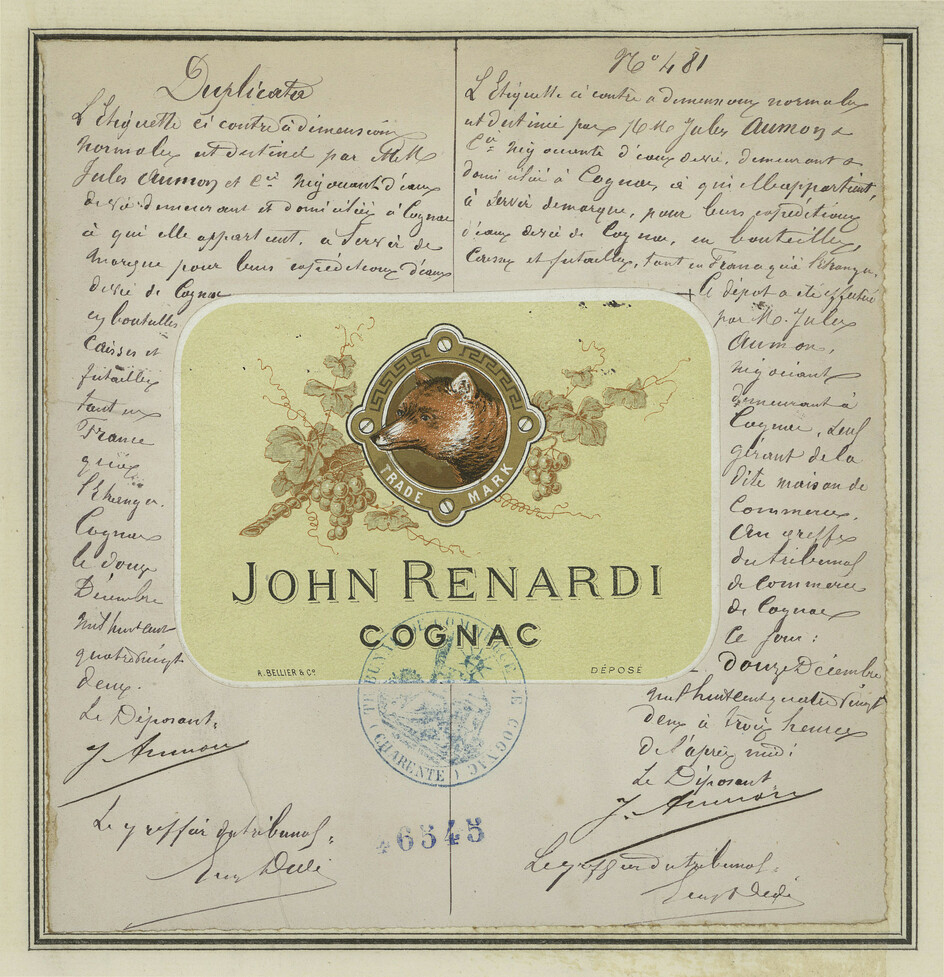 Duplicata
L'Etiquette ci contre à dimensions
normales est destiné par MM
Jules Aumon et Cie négociants d'eaux
de vie demeurant et domiciliés à Cognac
à qui elle appartient, à servir de
marque pour leurs expéditions d'eaux
de vie de Cognac
en bouteilles
caisses et
futailles
tant en
France
qu'à
l'étranger.
Cognac
le douze
Décembre
mil huit cent
quatre vingt
deux.
Le Déposant,
J. Aumon
Le greffier du tribunal
N° 481
L'Etiquette ci contre a dimensions normales
est destiné par MM Jules Aumon &
Cie négociants d'eaux de vie, demeurant &
domiciliés à Cognac à qui elle appartient,
à servir de marque, pour leurs expéditions
d'eaux de vie de Cognac, en bouteilles,
Caisses et futailles, tant en France qu'à l'étranger.
Le dépot a été effectué
par M. Jules
Aumon,
négociant
demeurant à
Cognac, seul
gérant de la
dite maison de
Commerce.
Au greffe
du tribunal
de Commerce
de Cognac
Ce jour:
douze Décembre
mil huit cent quatre vingt
deux à trois heures
de l'après midi
Le Déposant
J. Aumon
Le greffier du tribunal
TRADE MARK
JOHN RENARDI
COGNAC
R. BELLIER & Cie
DÉPOSÉ
TRIBUNAL DE COMMERCE DE COGNAC
(CHARENTE)
46545